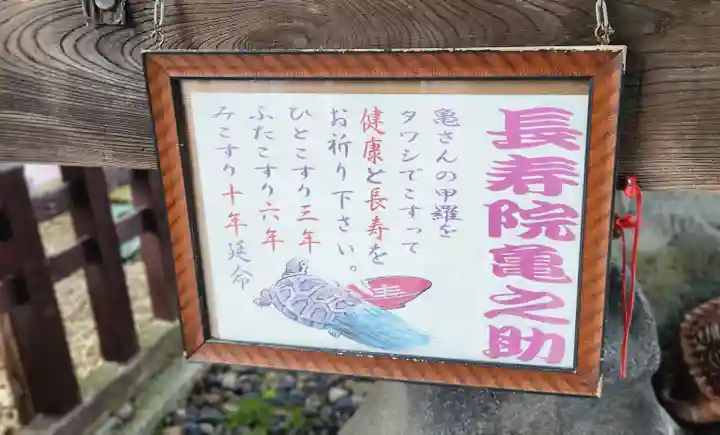 長寿院亀之助
亀さんの甲羅を
タワシでこすって
健康と長寿を
お祈り下さい。
ひとこすり三年
ふたこすり六年
みこすり十年延命
寿